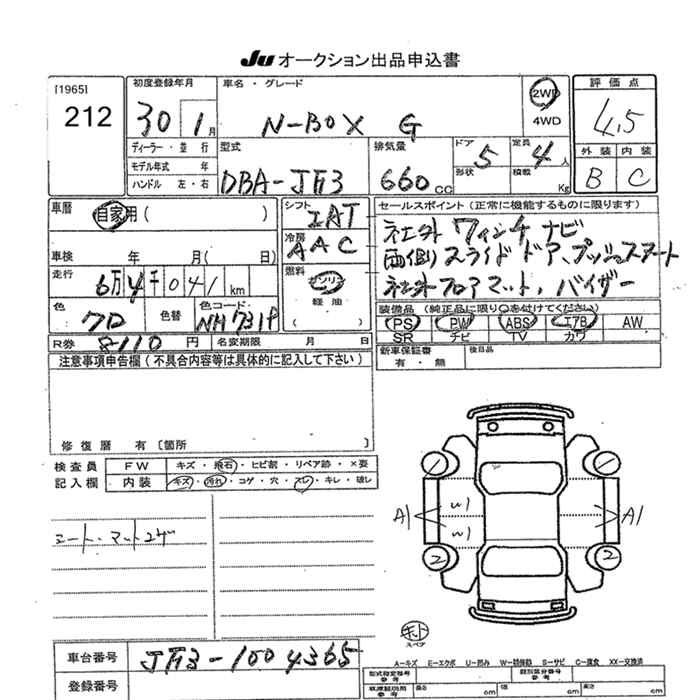 Ju オークション出品申込書
[1965]
212
初度登録年月
30 1月
車名・グレード
N-BOX G
2WD
4WD
評価点
4.5
外装 内装
B C
ディーラー・並行
モデル年式 年
ハンドル 左・右
型式
DBA-JF3
排気量
660 CC
ドア
5
形状
定員
4人
積載
Kg
車歴
自家用( )
シフト
IAT
冷房
AAC
セールスポイント(正常に機能するものに限ります)
社外 ワインチ ナビ
両側スライドドア、プッシュスタート
社外フロアマット、バイザー
車検 年 月( 日)
走行
6万4千041km
燃料
ガソリン
軽油
( )
色
クロ
色替
色コード
NH731P
装備品(純正品に限り○を付けてください)
PS PW ABS エアB AW
SR ナビ TV カワ
R券 8110 円
名変期限 月 日
新車保証書
有・無
後日品
注意事項申告欄(不具合内容等は具体的に記入して下さい)
修復歴 有〔箇所 〕
検査員
記入欄
FW キズ・飛石・ヒビ割・リペア跡・×要
内装 キズ・汚れ・コゲ・穴・スレ・キレ・破レ
シート・マットコゲ
1 1
A1 W1 W1 A1
2 2
スペア
車台番号 JF3-1004365
登録番号
A-キズ E-エクボ U-凹み W-補修跡 S-サビ C-腐食 XX-交換済
型式指定番号
類別区分番号
車庫証明用
長さ cm 幅 cm 高さ cm